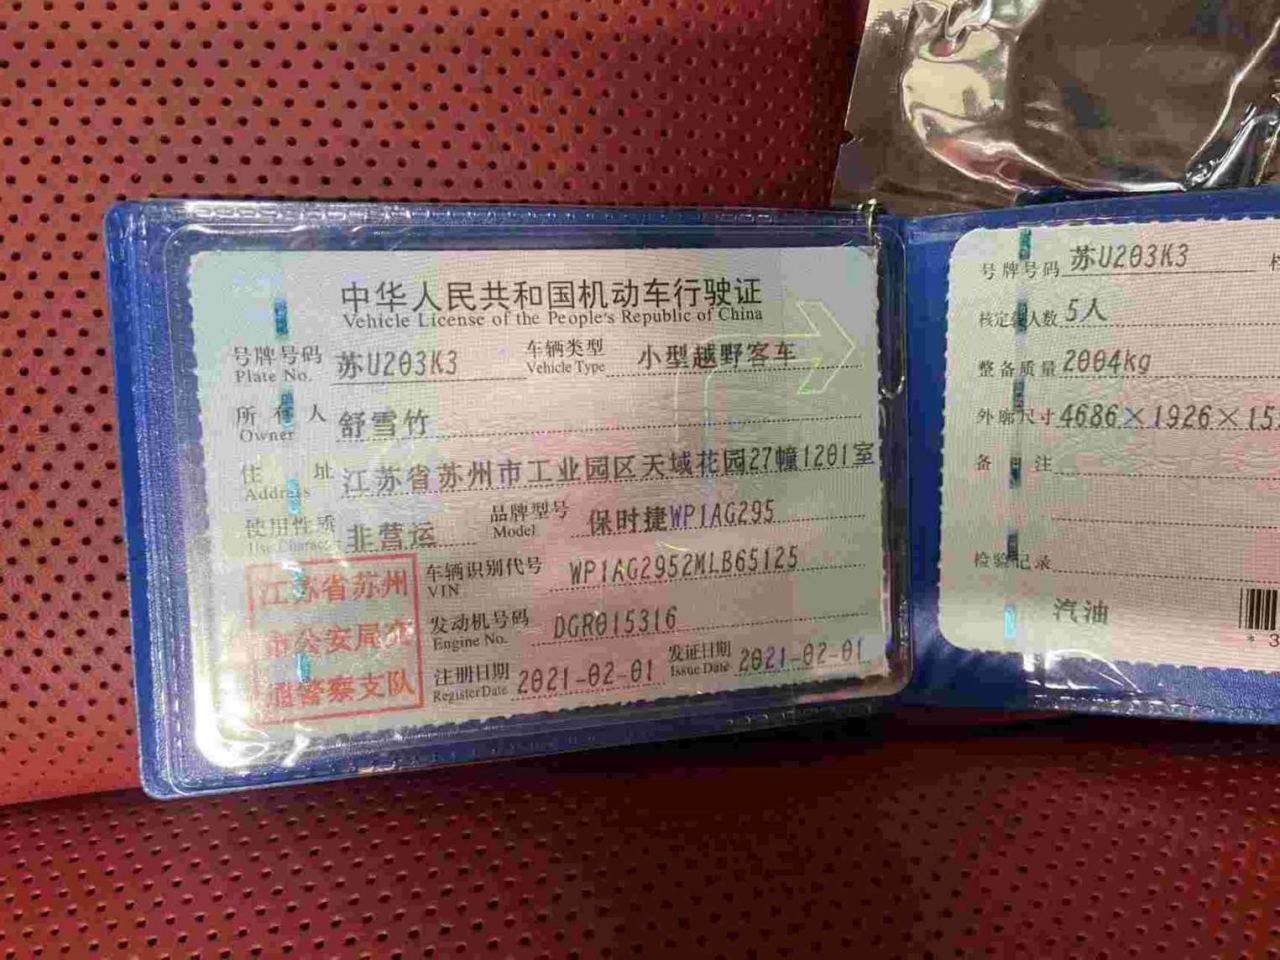 中华人民共和国机动车行驶证
Vehicle License of the People's Republic of China
号牌号码 苏U203K3 车辆类型 小型越野客车
Plate No. Vehicle Type
所有人 舒雪竹
Owner
住址 江苏省苏州市工业园区天域花园27幢1201室
Address
使用性质 非营运 品牌型号 保时捷WP1AG295
Use Character Model
车辆识别代号 WP1AG2952MLB65125
VIN
发动机号码 DGR015316
Engine No.
注册日期 2021-02-01 发证日期 2021-02-01
Register Date Issue Date
江苏省苏州
市公安局交
通警察支队
号牌号码 苏U203K3
核定载人数 5人
整备质量 2004kg
外廓尺寸 4686×1926×15
备注
检验记录
汽油
*3